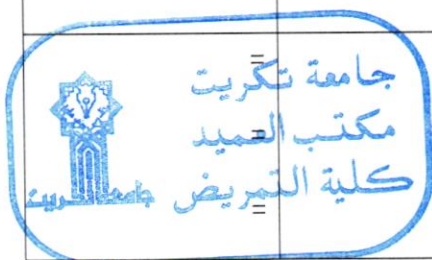 جامعة تكريت
=
مكتب العميد
=
كلية التمريض
=
جامعة تكريت